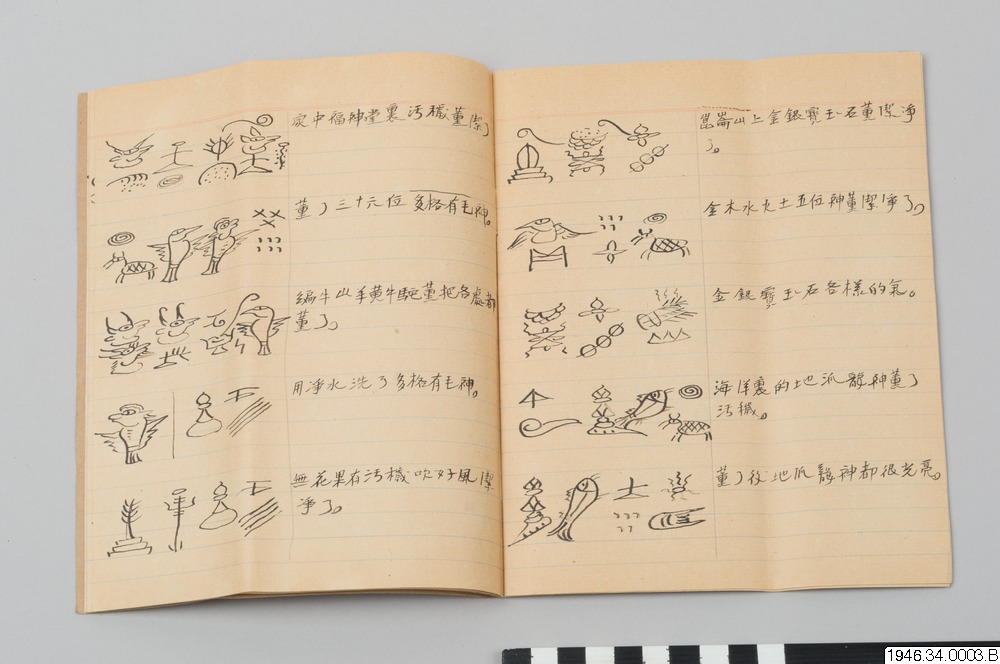 家中福神堂裏汚穢薫潔了
薫了三十六位多格有毛神。
犏牛山羊黄牛馳薫把各處都
薫了。
用净水洗了多格有毛神。
無花果有汚穢吹好風潔
净了。
崑崙山上金銀寶玉石薫潔净
了。
金木水火土五位神薫潔净了。
金銀寶玉石各樣的氣。
海洋裏的地派龍神薫了
汚穢。
薫了後地派龍神都很光亮。
1946.34.0003.B